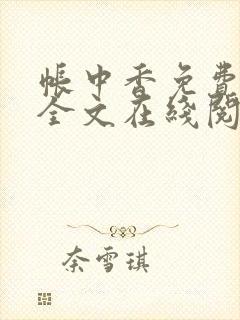 帐中香免费
全文在线阅
奈雪琪